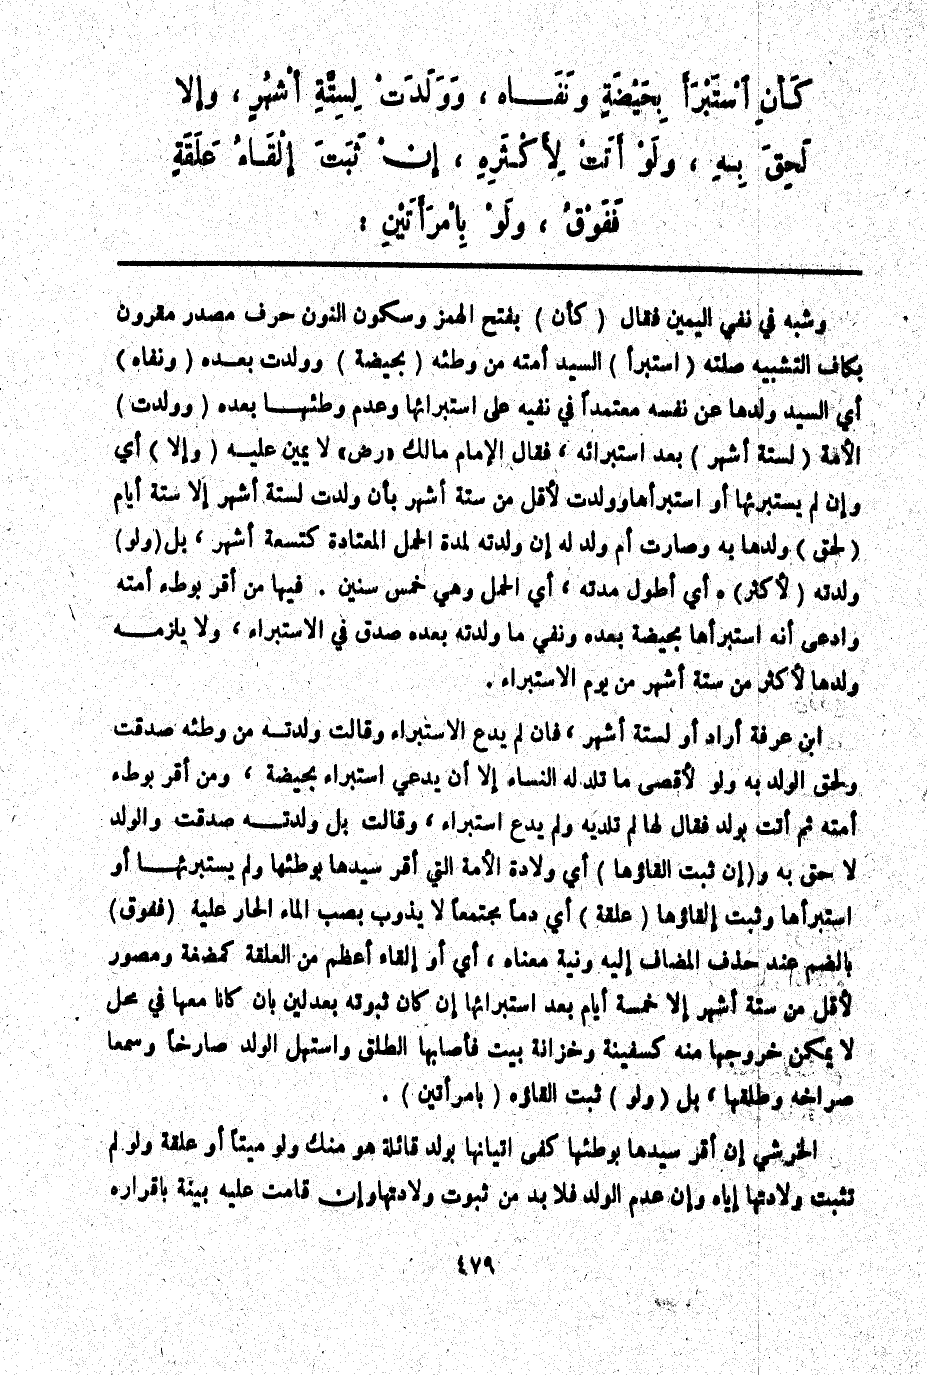 كَأَنِ اَسْتَبْرَأَ بِحَيْضَةٍ ونَفَـــاه ، وَوَلَدَتْ لِسِتَّةِ أَشْهُرٍ ، وإلا
لَحِقَ بِــهِ ، ولَوْ أَتَتْ لِأَكْثَرِهِ ، إن ثَبَتَ إلْقَــاءُ عَلَقَةٍ
فَفَوْقُ ، ولَوْ بِاْمرَأَتَيْنِ :
وشبه في نفي اليمين فقال ( كأن ) بفتح الهمز وسكون النون حرف مصدر مقرون
بكاف التشبيه صلته ( استبرأ ) السيد أمته من وطئه ( بحيضة ) وولدت بعــده ( ونفاه )
أي السيد ولدها عن نفسه معتمداً في نفيه على استبرائها وعدم وطئهــا بعده ( وولدت )
الأمة ( لستة أشهر ) بعد استبرائه ، فقال الإمام مالك «رض» لا يمين عليــه ( وإلا ) أي
وإن لم يستبرئها أو استبرأهاوولدت لأقل من ستة أشهر بأن ولدت لستة أشهر إلا ستة أيام
( لحق ) ولدها به وصارت أم ولد له إن ولدته لمدة الحمل المعتادة كتسعة أشهر ، بل(ولو)
ولدته ( لأكثر) ه أي أطول مدته ، أي الحمل وهي خمس سنين . فيها من أقر بوطء أمته
وادعى أنه استبرأها بحيضة بعده ونفي ما ولدته بعده صدق في الاستبراء ، ولا يلزمــه
ولدها لأكثر من ستة أشهر من يوم الاستبراء .
ابن عرفة أراد أو لستة أشهر ، فان لم يدع الاستبراء وقالت ولدتــه من وطئه صدقت
ولحق الولد به ولو لأقصى ما تلد له النساء إلا أن يدعي استبراء بحيضة ، ومن أقر بوطء
أمته ثم أتت بولد فقال لها لم تلديه ولم يدع استبراء ، وقالت بل ولدتــه صدقت والولد
لا حق به و(إن ثبت القاؤها ) أي ولادة الأمة التي أقر سيدها بوطئها ولم يستبرئهــا أو
استبرأها وثبت إلقاؤها ( علقة ) أي دماً مجتمعاً لا يذوب بصب الماء الحار علية (ففوق)
بالضم عند حذف المضاف إليه ونية معناه ، أي أو إلقاء أعظم من العلقة كمضغة ومصور
لأقل من ستة أشهر إلا خمسة أيام بعد استبرائها إن كان ثبوته بعدلين بان كانا معها في محل
لا يمكن خروجها منه كسفينة وخزانة بيت فأصابها الطلق واستهل الولد صارخاً وسمعا
صراخه وطلقها ، بل ( ولو ) ثبت القاؤه ( بامرأتين ) .
الخرشي إن أقر سيدها بوطئها كفى اتيانها بولد قائلة هو منك ولو ميتاً أو علقة ولو لم
تثبت ولادتها إياه وإن عدم الولد فلا بد من ثبوت ولادتهاوإن قامت عليه بينة باقراره
٤٧٩